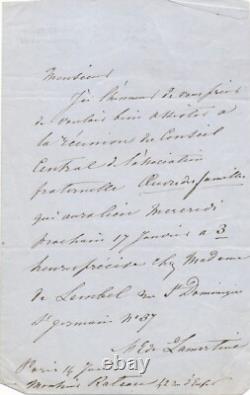 Monsieur
J'ai l'honneur de vous prier
de vouloir bien assister à
la réunion du Conseil
Central de l'association
fraternelle
qui aura lieu Mercredi
prochain 17 Janvier à 3
heures précise chez Madame
de Lembel rue St Dominique
St germain N° 37
de Lamartine
Paris 14
Monsieur Rateau